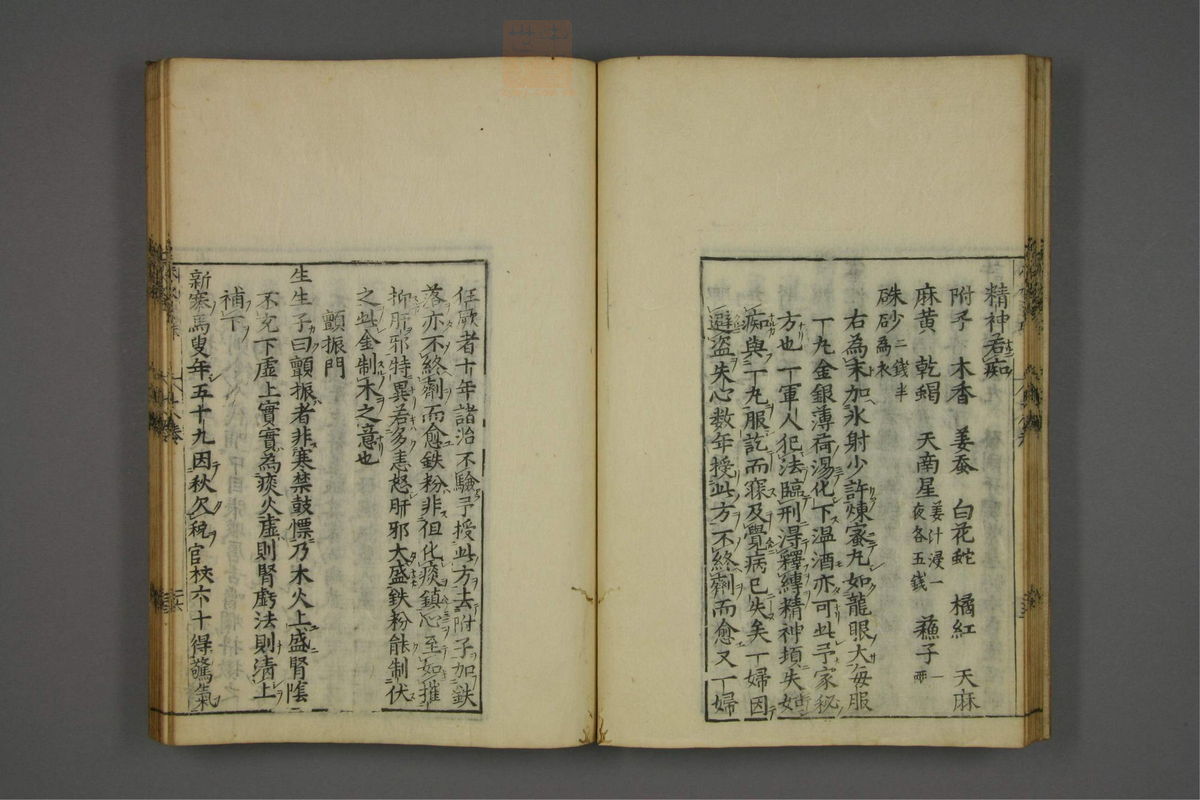 精神若痴
附子 木香 姜蚕 白花蛇 橘紅 天麻
麻黄 乾蝎 天南星 姜汁浸一夜各五銭 蘓子 一両
硃砂 二銭半為衣
右為末加氷射少許煉蜜丸如龍眼大毎服
一丸金銀薄荷湯化下温酒亦可此予家秘
方也一軍人犯法臨刑得釋縛精神頓失如
痴與一丸服訖而寐及覺病已失矣一婦因
避盗失心数年授此方不終劑而愈又一婦
狂厥者十年諸治不驗予授此方去附子加鉄
落亦不終劑而愈鉄粉非但化痰鎮心至如摧
抑肝邪特異若多恚怒肝邪大盛鉄粉能制伏
之此金制木之意也
顫振門
生生子曰顫振者非寒禁鼓慄乃木火上盛腎陰
不充下虚上實實為痰火虚則腎虧法則清上
補下
新寨馬叟年五十九因秋欠税官杖六十得驚氣